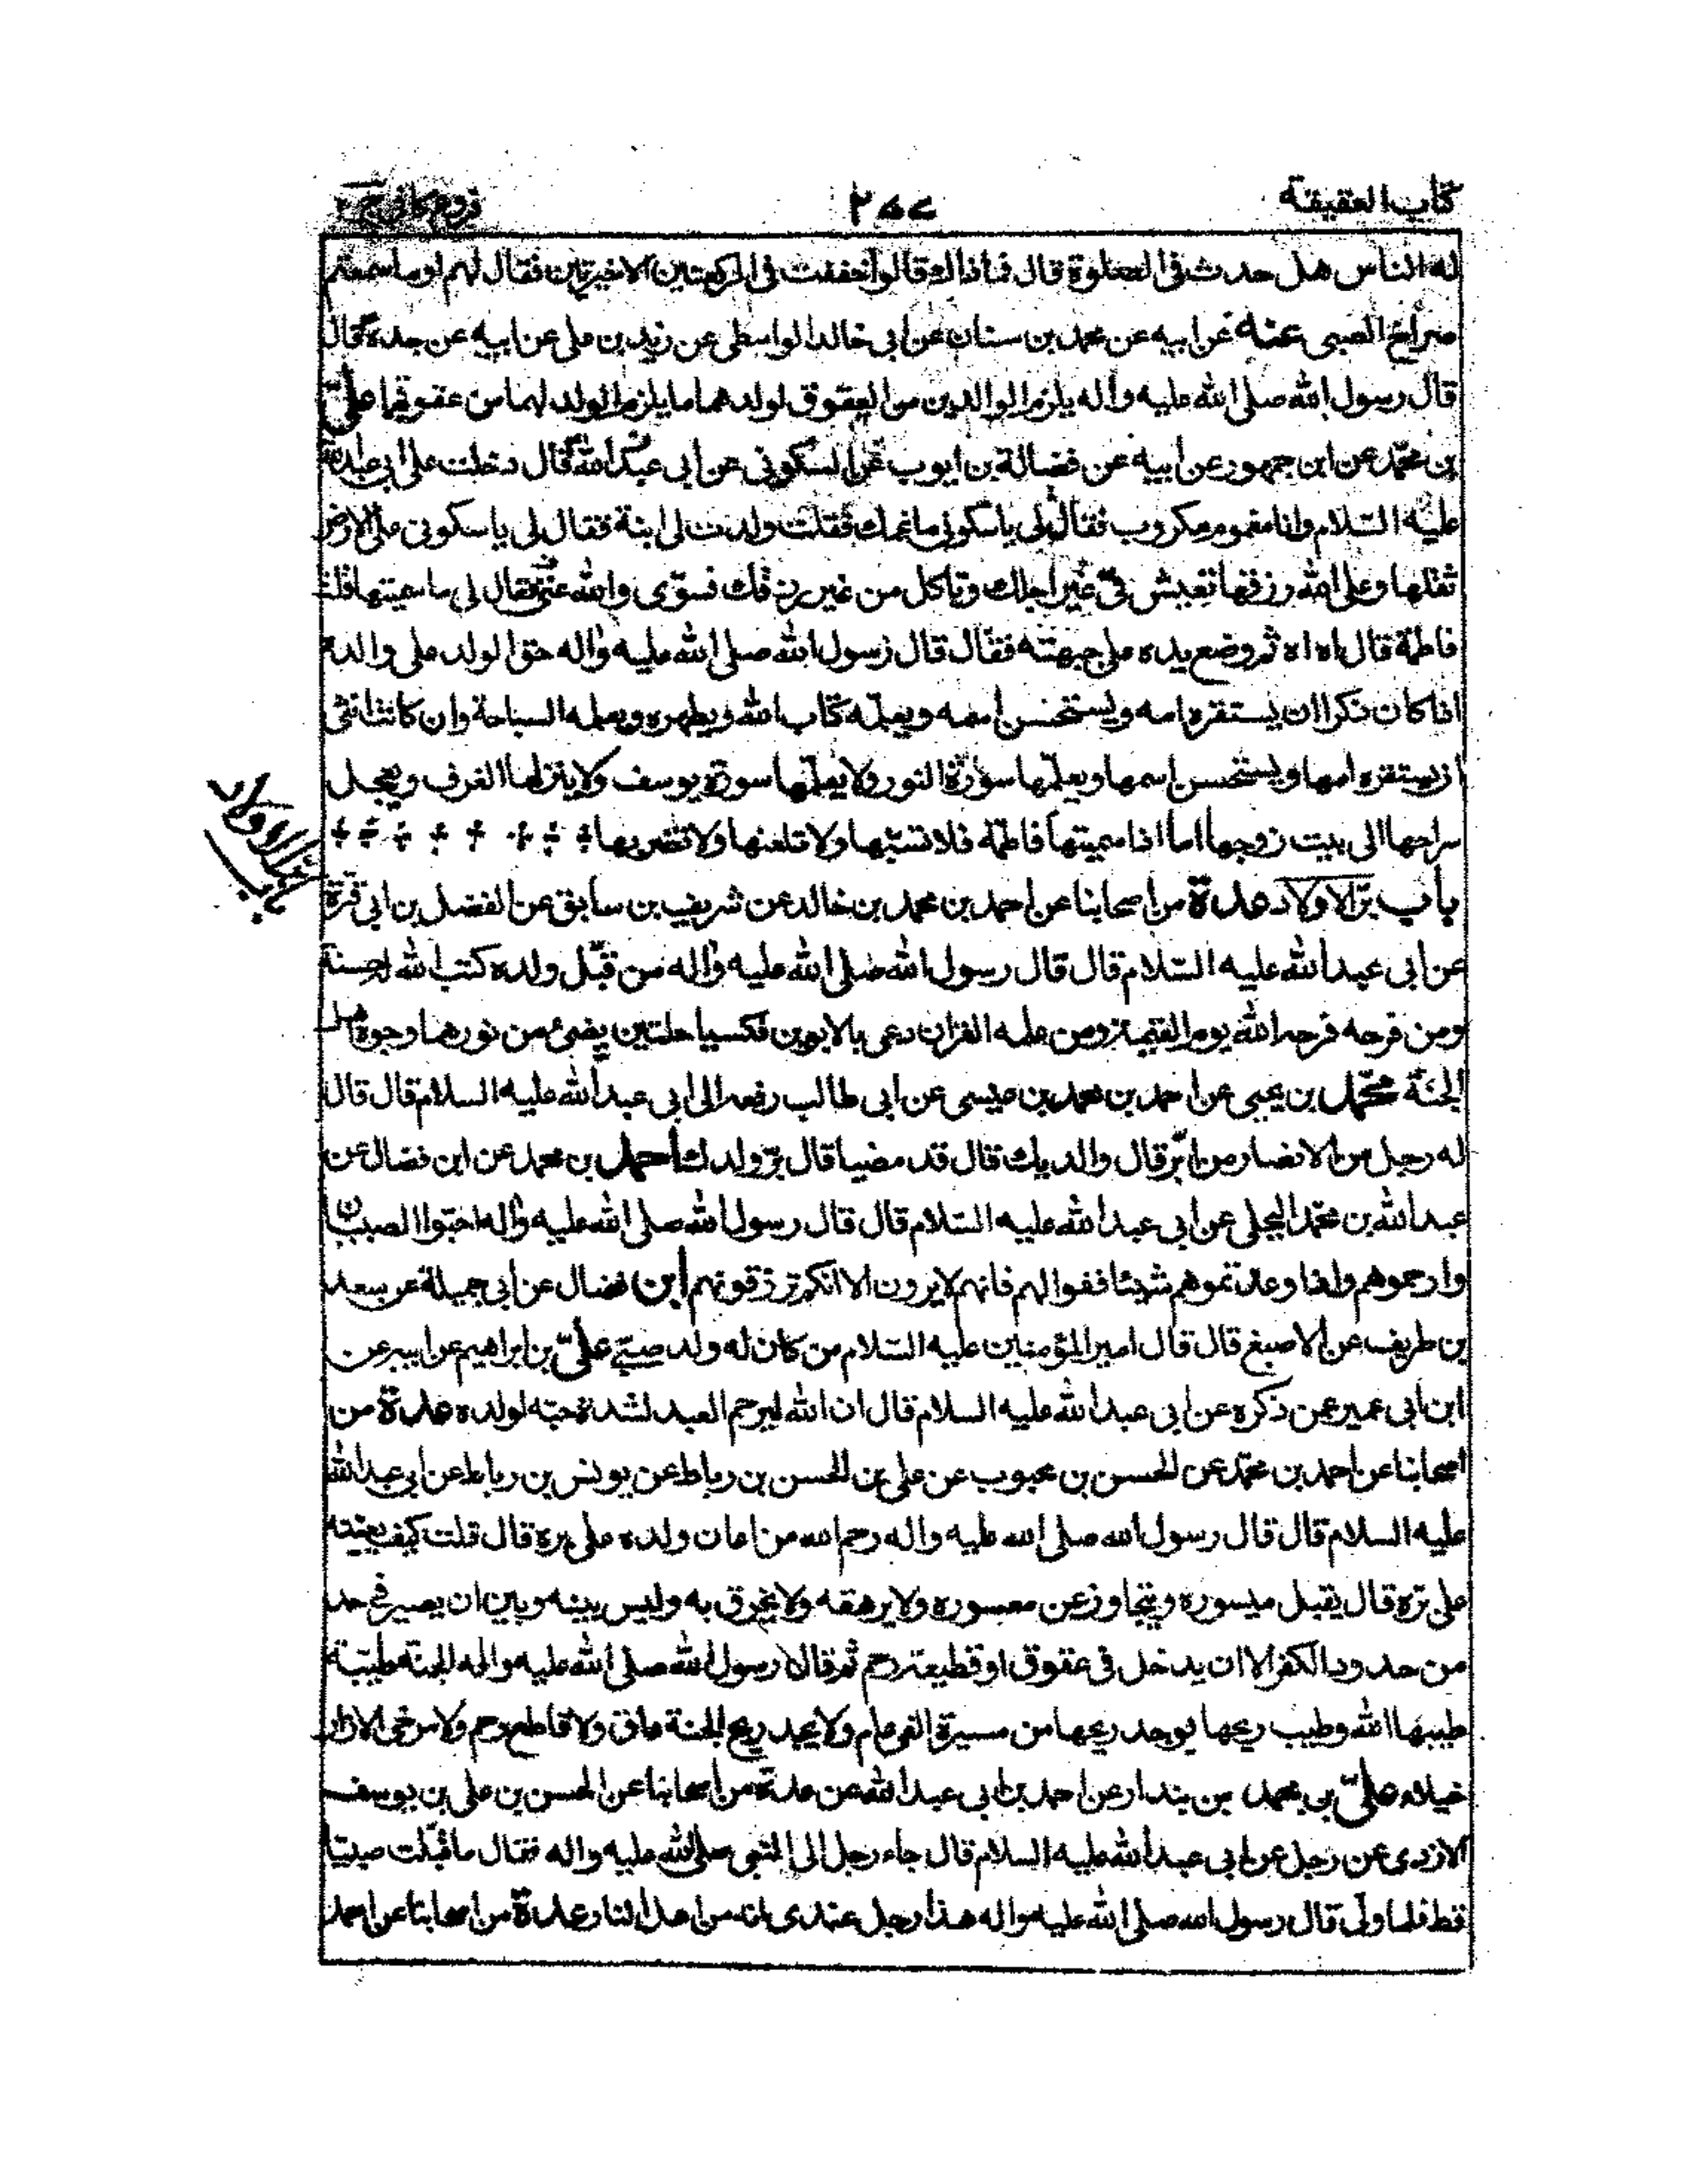 كتاب العقيقة
فروع كافي ج ٢
له الناس هل حدث في الصلوة قال فما ذاك قالوا خففت في الركعتين الاخيرتين فقال لهم او ما سمعتم
صراخ الصبي عنه عن ابيه عن محمد بن سنان عن ابي خالد الواسطى عن زيد بن علي عن ابيه عن جده قال
قال رسول الله صلى الله عليه واله يلزم الوالدين من العقوق لولدهما ما يلزم الولد لهما من عقوقهما علىّ
بن محمّد عن ابن جمهور عن ابيه عن فضالة بن ايوب عن السكونى عن ابى عبد الله قال دخلت على ابى عبد الله
عليه السّلام وانا مغموم مكروب فقال لى يا سكونى ما غمك فقلت ولدت لى ابنة فقال لى يا سكونى على الارض
ثقلها وعلى الله رزقها تعيش فى غير اجلك وتاكل من غير رزقك فسرّى والله عنّى فقال لى ما سميتها قلت
فاطمة قال اه اه ثم وضع يده على جبهته فقال قال رسول الله صلى الله عليه واله حق الولد على والده
اذا كان ذكرا ان يستفره امه ويستحسن اسمه ويعلّمه كتاب الله ويطهره ويعلمه السباحة وان كانت انثى
ان يستفره امها ويستحسن اسمها ويعلّمها سورة النور ولا يعلّمها سورة يوسف ولا ينزلها الغرف ويعجل
سراحها الى بيت زوجها اما اذا سميتها فاطمة فلا تسبّها ولا تلعنها ولا تضربها
باب برّ الاولاد عدة من اصحابنا عن احمد بن محمد بن خالد عن شريف بن سابق عن الفضل بن ابى قرّة
عن ابى عبد الله عليه السّلام قال قال رسول الله صلى الله عليه واله من قبّل ولده كتب الله له حسنة
ومن فرحه فرحه الله يوم القيمة ومن علمه القران دعى بالابوين فكسيا حلتين يضئ من نورهما وجوه اهل
الجنة محمّد بن يحيى عن احمد بن محمد بن عيسى عن ابى طالب رفعه الى ابى عبد الله عليه السلام قال قال
له رجل من الانصار من ابرّ قال والديك قال قد مضيا قال برّ ولدك احمد بن محمد عن ابن فضال عن
عبد الله بن محمّد البجلى عن ابى عبد الله عليه السّلام قال قال رسول الله صلى الله عليه واله احبّوا الصبيان
وارحموهم واذا وعدتموهم شيئا ففوا لهم فانهم لا يرون الا انكم ترزقونهم ابن فضال عن ابى جميلة عن سعد
بن طريف عن الاصبغ قال قال امير المؤمنين عليه السّلام من كان له ولد صبىّ علىّ بن ابراهيم عن ابيه عن
ابن ابى عمير عمن ذكره عن ابى عبد الله عليه السلام قال ان الله ليرحم العبد لشدة حبّه لولده عدة من
اصحابنا عن احمد بن محمّد عن الحسن بن محبوب عن على بن الحسن بن رباط عن يونس بن رباط عن ابى عبد الله
عليه السلام قال قال رسول الله صلى الله عليه واله رحم الله من اعان ولده على بره قال قلت كيف يعينه
على برّه قال يقبل ميسوره ويتجاوز عن معسوره ولا يرهقه ولا يخرق به وليس بينه وبين ان يصير فى حد
من حدود الكفر الا ان يدخل فى عقوق او قطيعة رحم ثم قال رسول الله صلى الله عليه واله الجنة طيّبة
طيبها الله وطيب ريحها يوجد ريحها من مسيرة الفى عام ولا يجد ريح الجنة عاق ولا قاطع رحم ولا مرخى الازار
خيلاء علىّ بن محمد بن بندار عن احمد بن ابى عبد الله عن عدة من اصحابنا عن الحسن بن على بن يوسف
الازدى عن رجل عن ابى عبد الله عليه السلام قال جاء رجل الى النبى صلى الله عليه واله فقال ما قبّلت صبيّا
قط فلما ولّى قال رسول الله صلى الله عليه واله هذا رجل عندى انه من اهل النار عدة من اصحابنا عن احمد
باب بر الاولاد